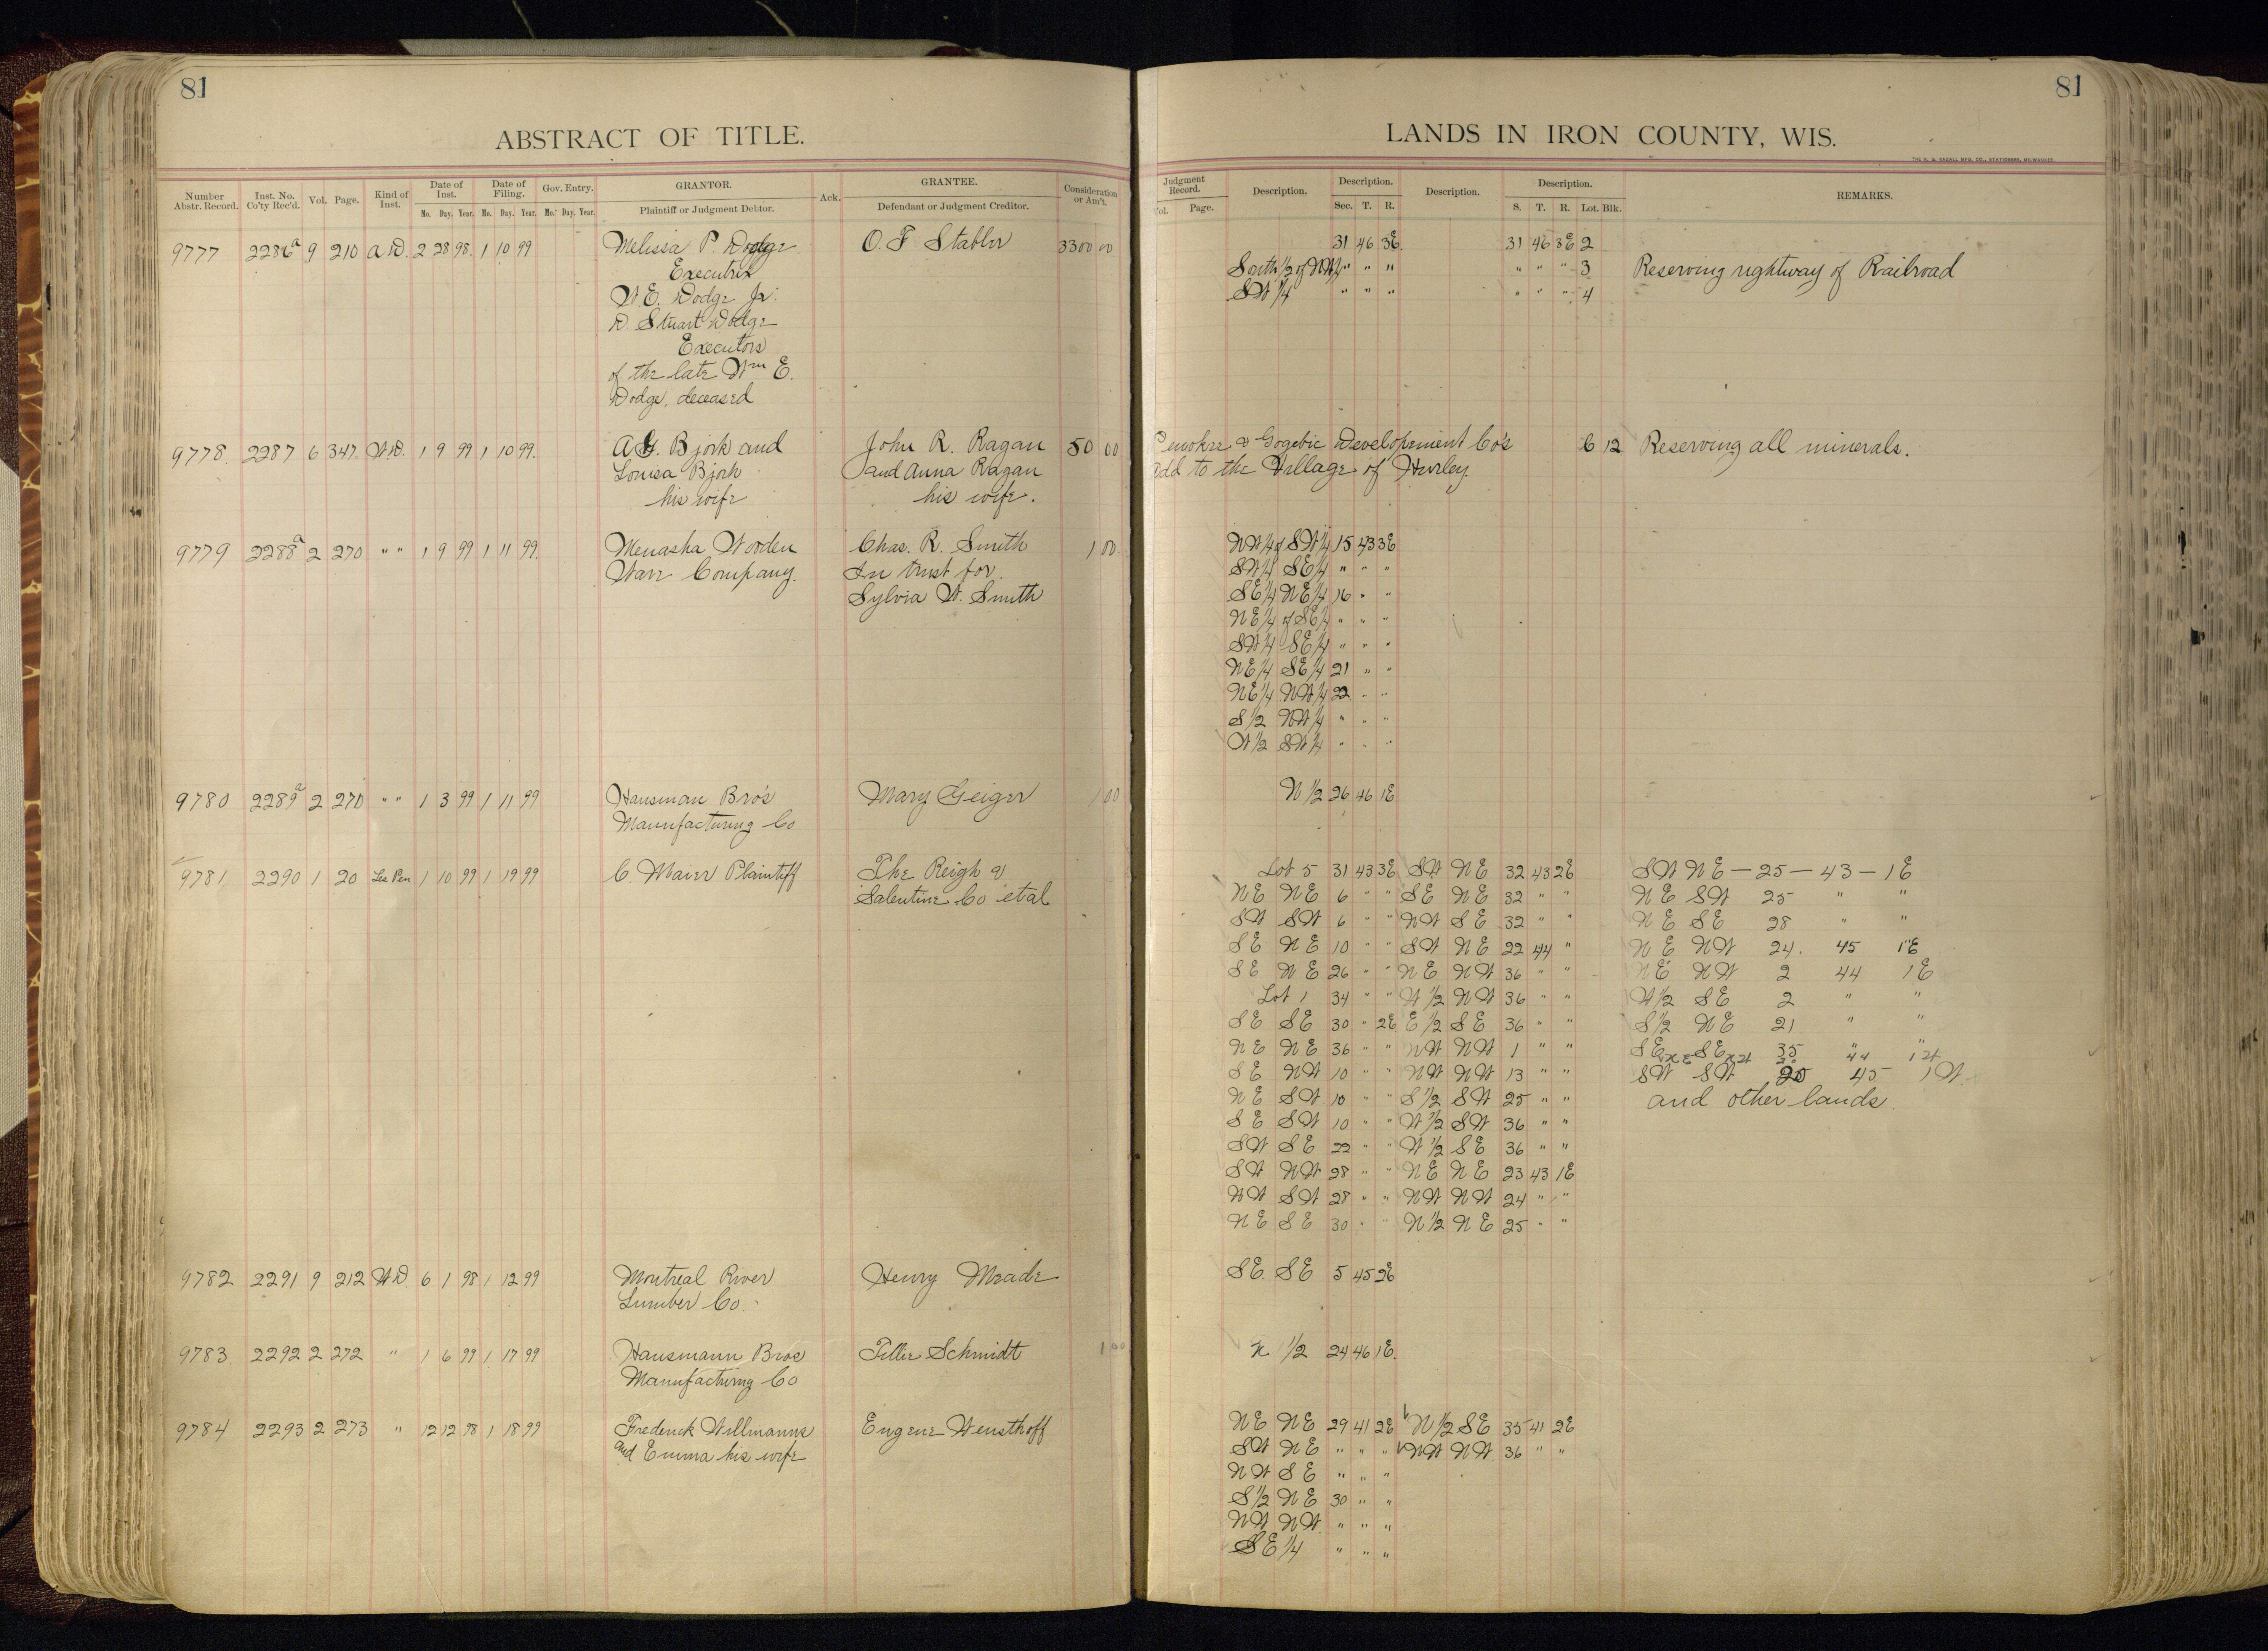 81
ABSTRACT OF TITLE.
Number Abstr. Record. Inst. No. Co'ty Rec'd. Vol. Page. Kind of Inst. Date of Inst. Date of Filing. Gov. Entry. GRANTOR. Ack. GRANTEE. Consideration or Am't.
Mo. Day. Year. Mo. Day. Year. Mo. Day. Year. Plaintiff or Judgment Debtor. Defendant or Judgment Creditor.
9777 2286a 9 210 A.D. 2 28 98 1 10 99 Melissa P. Dodge O. F Stabler 3300 00
Executrix
W E. Dodge Jr.
D. Stuart Dodge
Executors
of the late Wm E.
Dodge, deceased
9778. 2287 6 347 W.D. 1 9 99 1 10 99. A G. Bjork and John R. Ragan 50 00
Louisa Bjork and Anna Ragan
his wife his wife.
9779 2288a 2 270 " " 1 9 99 1 11 99. Menasha Wooden Chas. R. Smith 1 00
Ware Company. In trust for
Sylvia W. Smith
9780 2289a 2 270 " " 1 3 99 1 11 99 Hausman Bro's Mary Geiger 1 00
Manufacturing Co
9781 2290 1 20 Lis Pen 1 10 99 1 19 99 C. Maier Plaintiff The Reigh &
Salentine Co et al
9782 2291 9 212 W.D. 6 1 98 1 12 99 Montreal River Henry Meade
Lumber Co.
9783. 2292 2 272 " 1 6 99 1 17 99 Hausmann Bros Tillie Schmidt 1 00
Manufacturing Co
9784 2293 2 273 " 12 12 98 1 18 99 Frederick Willmanns Eugene Wensthoff
and Emma his wife
81
LANDS IN IRON COUNTY, WIS.
Judgment Record. Description. Description. Description. Description. REMARKS.
Vol. Page. Sec. T. R. S. T. R. Lot. Blk.
31 46 3E. 31 46 3E 2
South 1/2 of NW 1/4 " " " " " " 3 Reserving rightway of Railroad
SW 1/4 " " " " " " 4
Penokee & Gogebic Development Co's 6 12 Reserving all minerals.
Add to the Village of Hurley.
NW 1/4 of SW 1/4 15 43 3E
SW 1/4 SE 1/4 " " "
SE 1/4 NE 1/4 16 " "
NE 1/4 of SE 1/4 " " "
SW 1/4 SE 1/4 " " "
NE 1/4 SE 1/4 21 " "
NE 1/4 NW 1/4 22 " "
S 1/2 NW 1/4 " " "
W 1/2 SW 1/4 " " "
N 1/2 26 46 1E
Lot 5 31 43 3E SW NE 32 43 2E SW NE — 25 — 43 — 1 E
NE NE 6 " " SE NE 32 " " NE SW 25 " "
SW SW 6 " " NW SE 32 " " NE SE 28 " "
SE NE 10 " " SW NE 22 44 " NE NW 24. 45 1E
SE NE 26 " " NE NW 36 " " NE NW 2 44 1E
Lot 1 34 " " W 1/2 NW 36 " " W 1/2 SE 2 " "
SE SE 30 " 2E E 1/2 SE 36 " " S 1/2 NE 21 " "
NE NE 36 " " NW NW 1 " " SE SE 35 " "
SE NW 10 " " NW NW 13 " " SW SW 25 45 1W.
NE SW 10 " " S 1/2 SW 25 " " and other lands.
SE SW 10 " " W 1/2 SW 36 " "
SW SE 22 " " W 1/2 SE 36 " "
SW NW 28 " " NE NE 23 43 1E
NW SW 28 " " NW NW 24 " "
NE SE 30 " " N 1/2 NE 25 " "
SE. SE 5 45 2E
N 1/2 24 46 1E.
NE NE 29 41 2E N 1/2 SE 35 41 2E
SW NE " " " NW NW 36 " "
NW SE " " "
S 1/2 NE 30 " "
NW NW " " "
SE 1/4 " " "